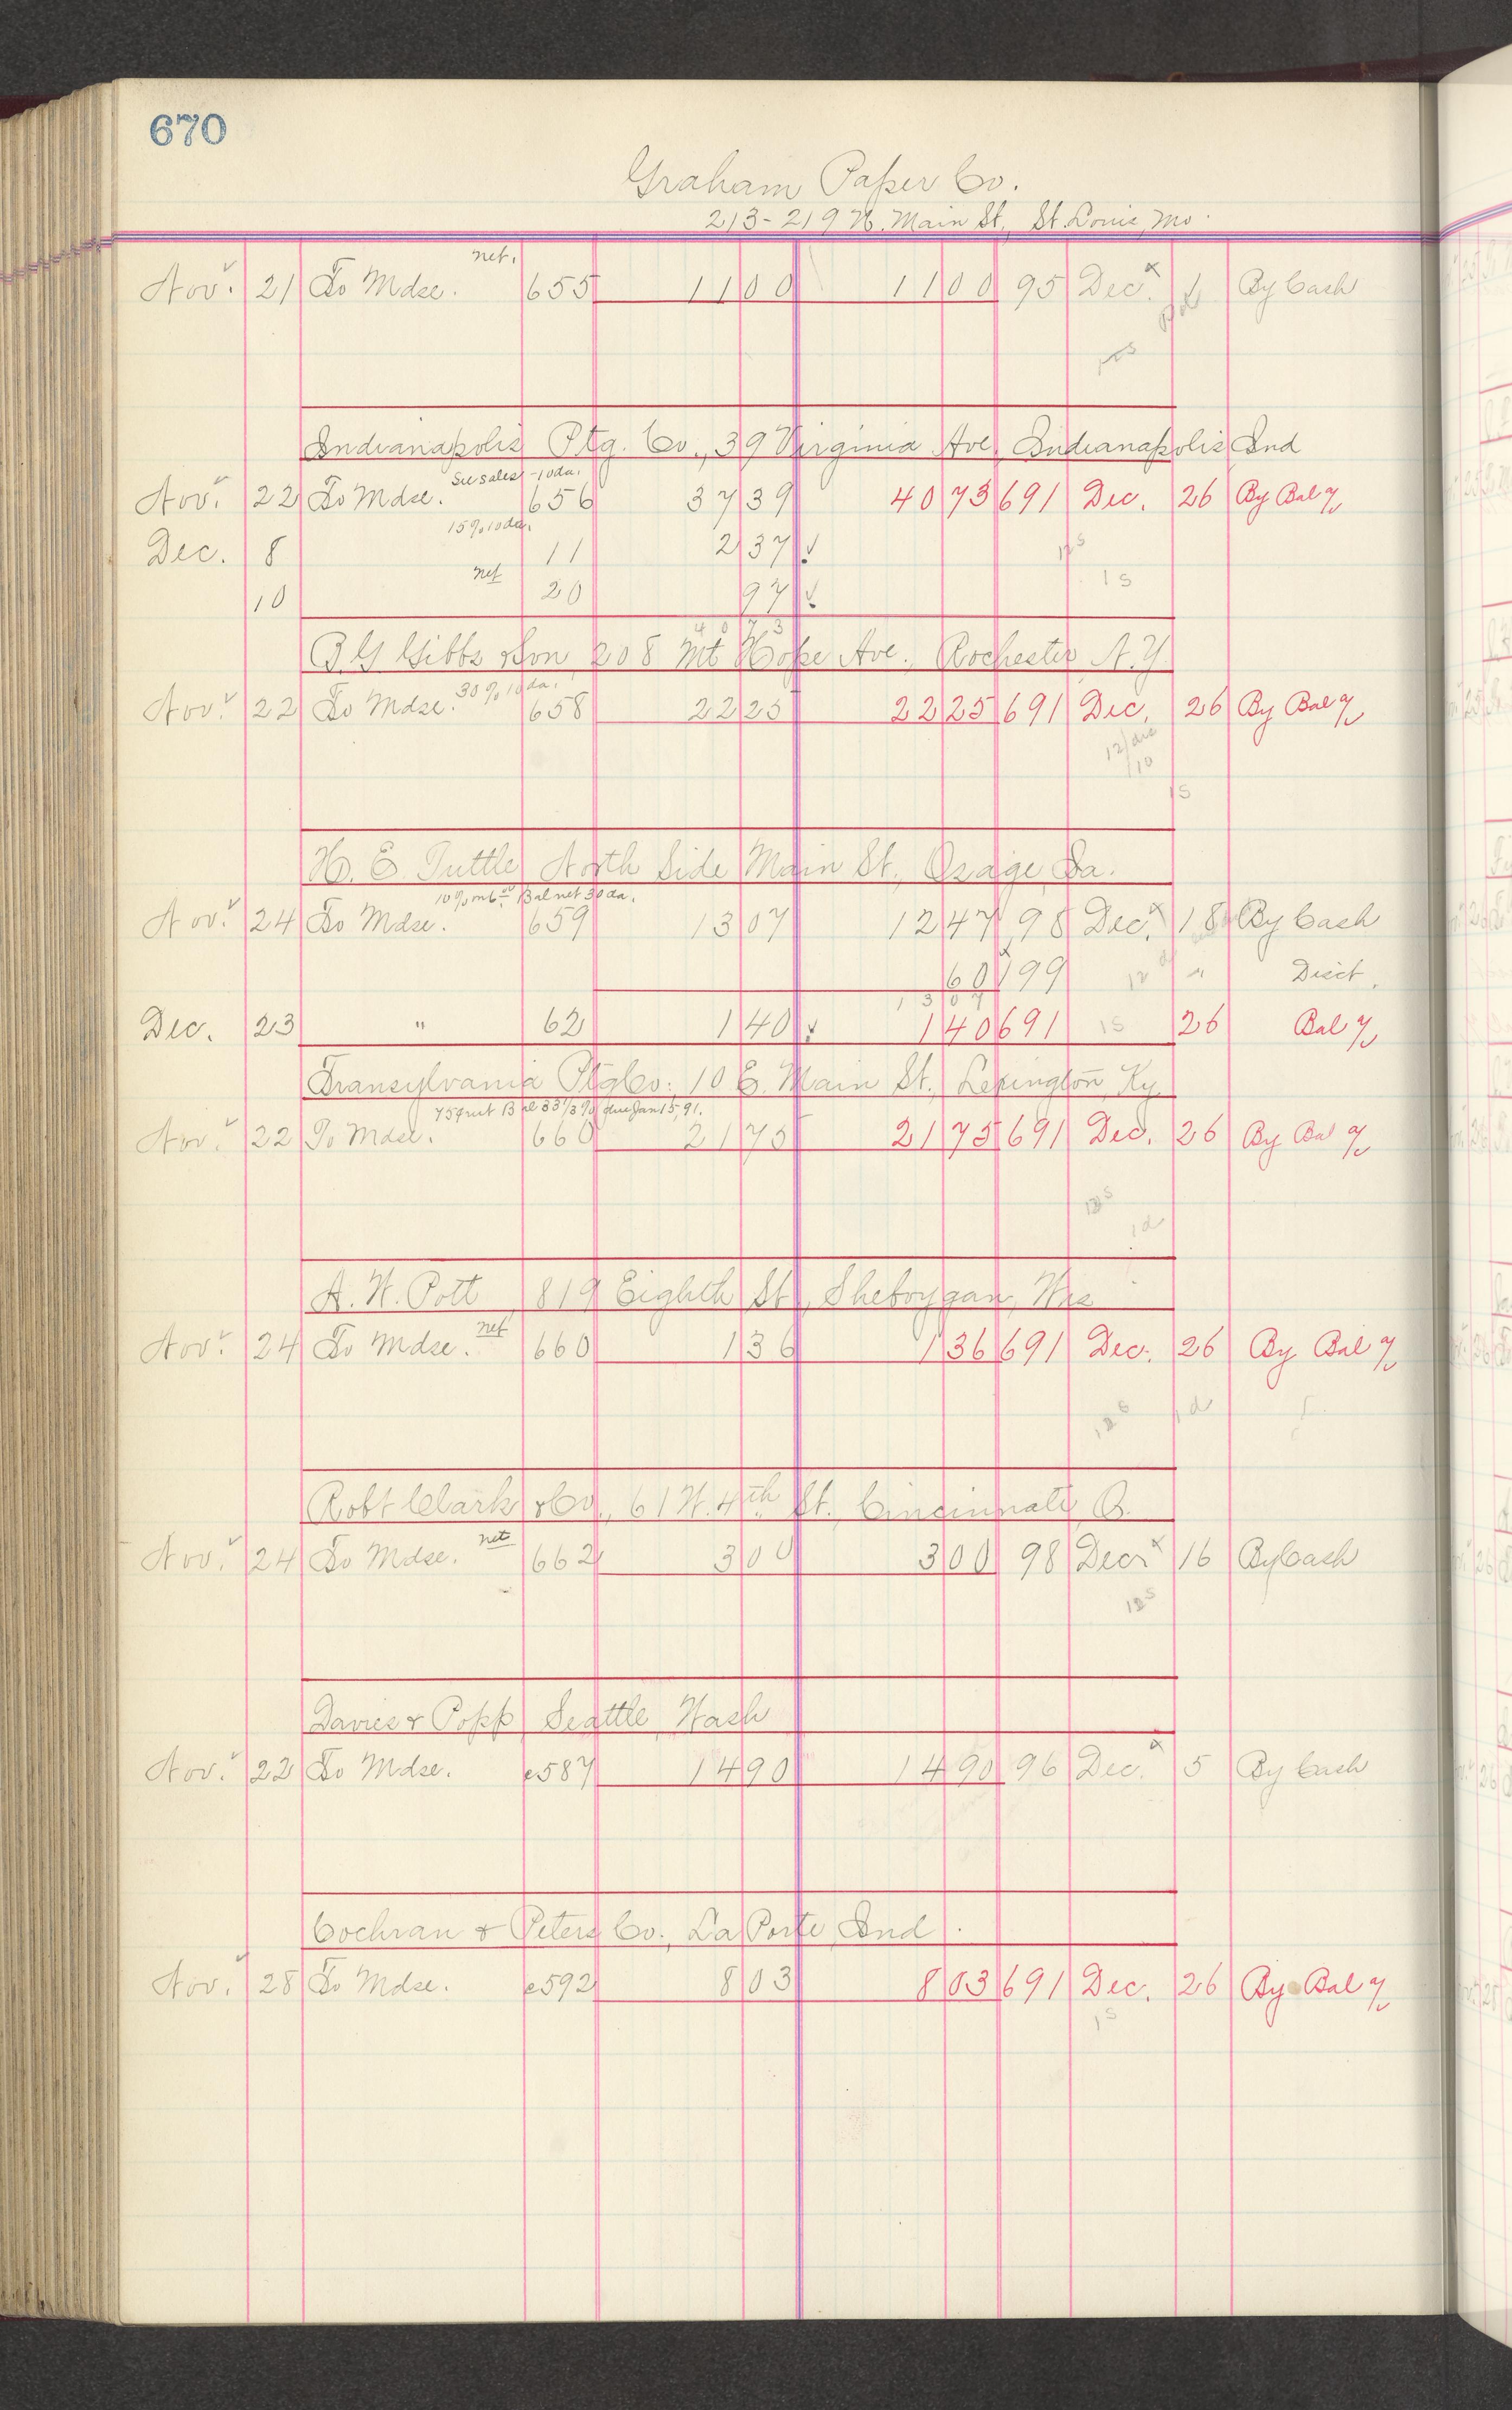 670
Graham Paper Co.
213-219 N. Main St., St. Louis, Mo.
net.
Nov. 21 To Mdse. 655 11 00 11 00 95 Dec. 1 By Cash
Indianapolis Ptg. Co., 39 Virginia Ave, Indianapolis Ind
See sales - 10 da.
Nov. 22 To Mdse. 656 37 39 40 73 691 Dec. 26 By Bal %
15% 10 da.
Dec. 8 11 2 37 ✓
12s
net
1s
10 20 97 ✓
40 73
Gibbs & Son 208 Mt Hope Ave., Rochester, N.Y.
30% 10 da.
Nov. 22 To Mdse. 658 22 25 22 25 691 Dec. 26 By Bal %
1s
H. E. Tuttle North Side Main St., Osage, Ia.
10% on 6.00 Bal net 30 da.
Nov. 24 To Mdse. 659 13 07 12 47 98 Dec. 18 By Cash
60 99 " Disct.
13 07
Dec. 23 " 62 1 40 ✓ 1 40 691 1s 26 Bal %
Transylvania Ptg Co. 10 E. Main St., Lexington, Ky.
75¢ net Bal 33 1/3% due Jan 15, 91.
Nov. 22 To Mdse. 660 21 75 21 75 691 Dec. 26 By Bal %
1d
A. W. Pott 819 Eighth St, Sheboygan, Wis
net
Nov. 24 To Mdse. 660 1 36 1 36 691 Dec. 26 By Bal %
1d
Robt Clark & Co., 61 W. 4th St. Cincinnati, O.
net
Nov. 24 To Mdse. 662 3 00 3 00 98 Dec 16 By Cash
Davies & Popp, Seattle, Wash
Nov. 22 To Mdse. c587 14 90 14 90 96 Dec. 5 By Cash
Cochran & Peters Co., La Porte, Ind.
Nov. 28 To Mdse. c592 8 03 8 03 691 Dec. 26 By Bal %
1s